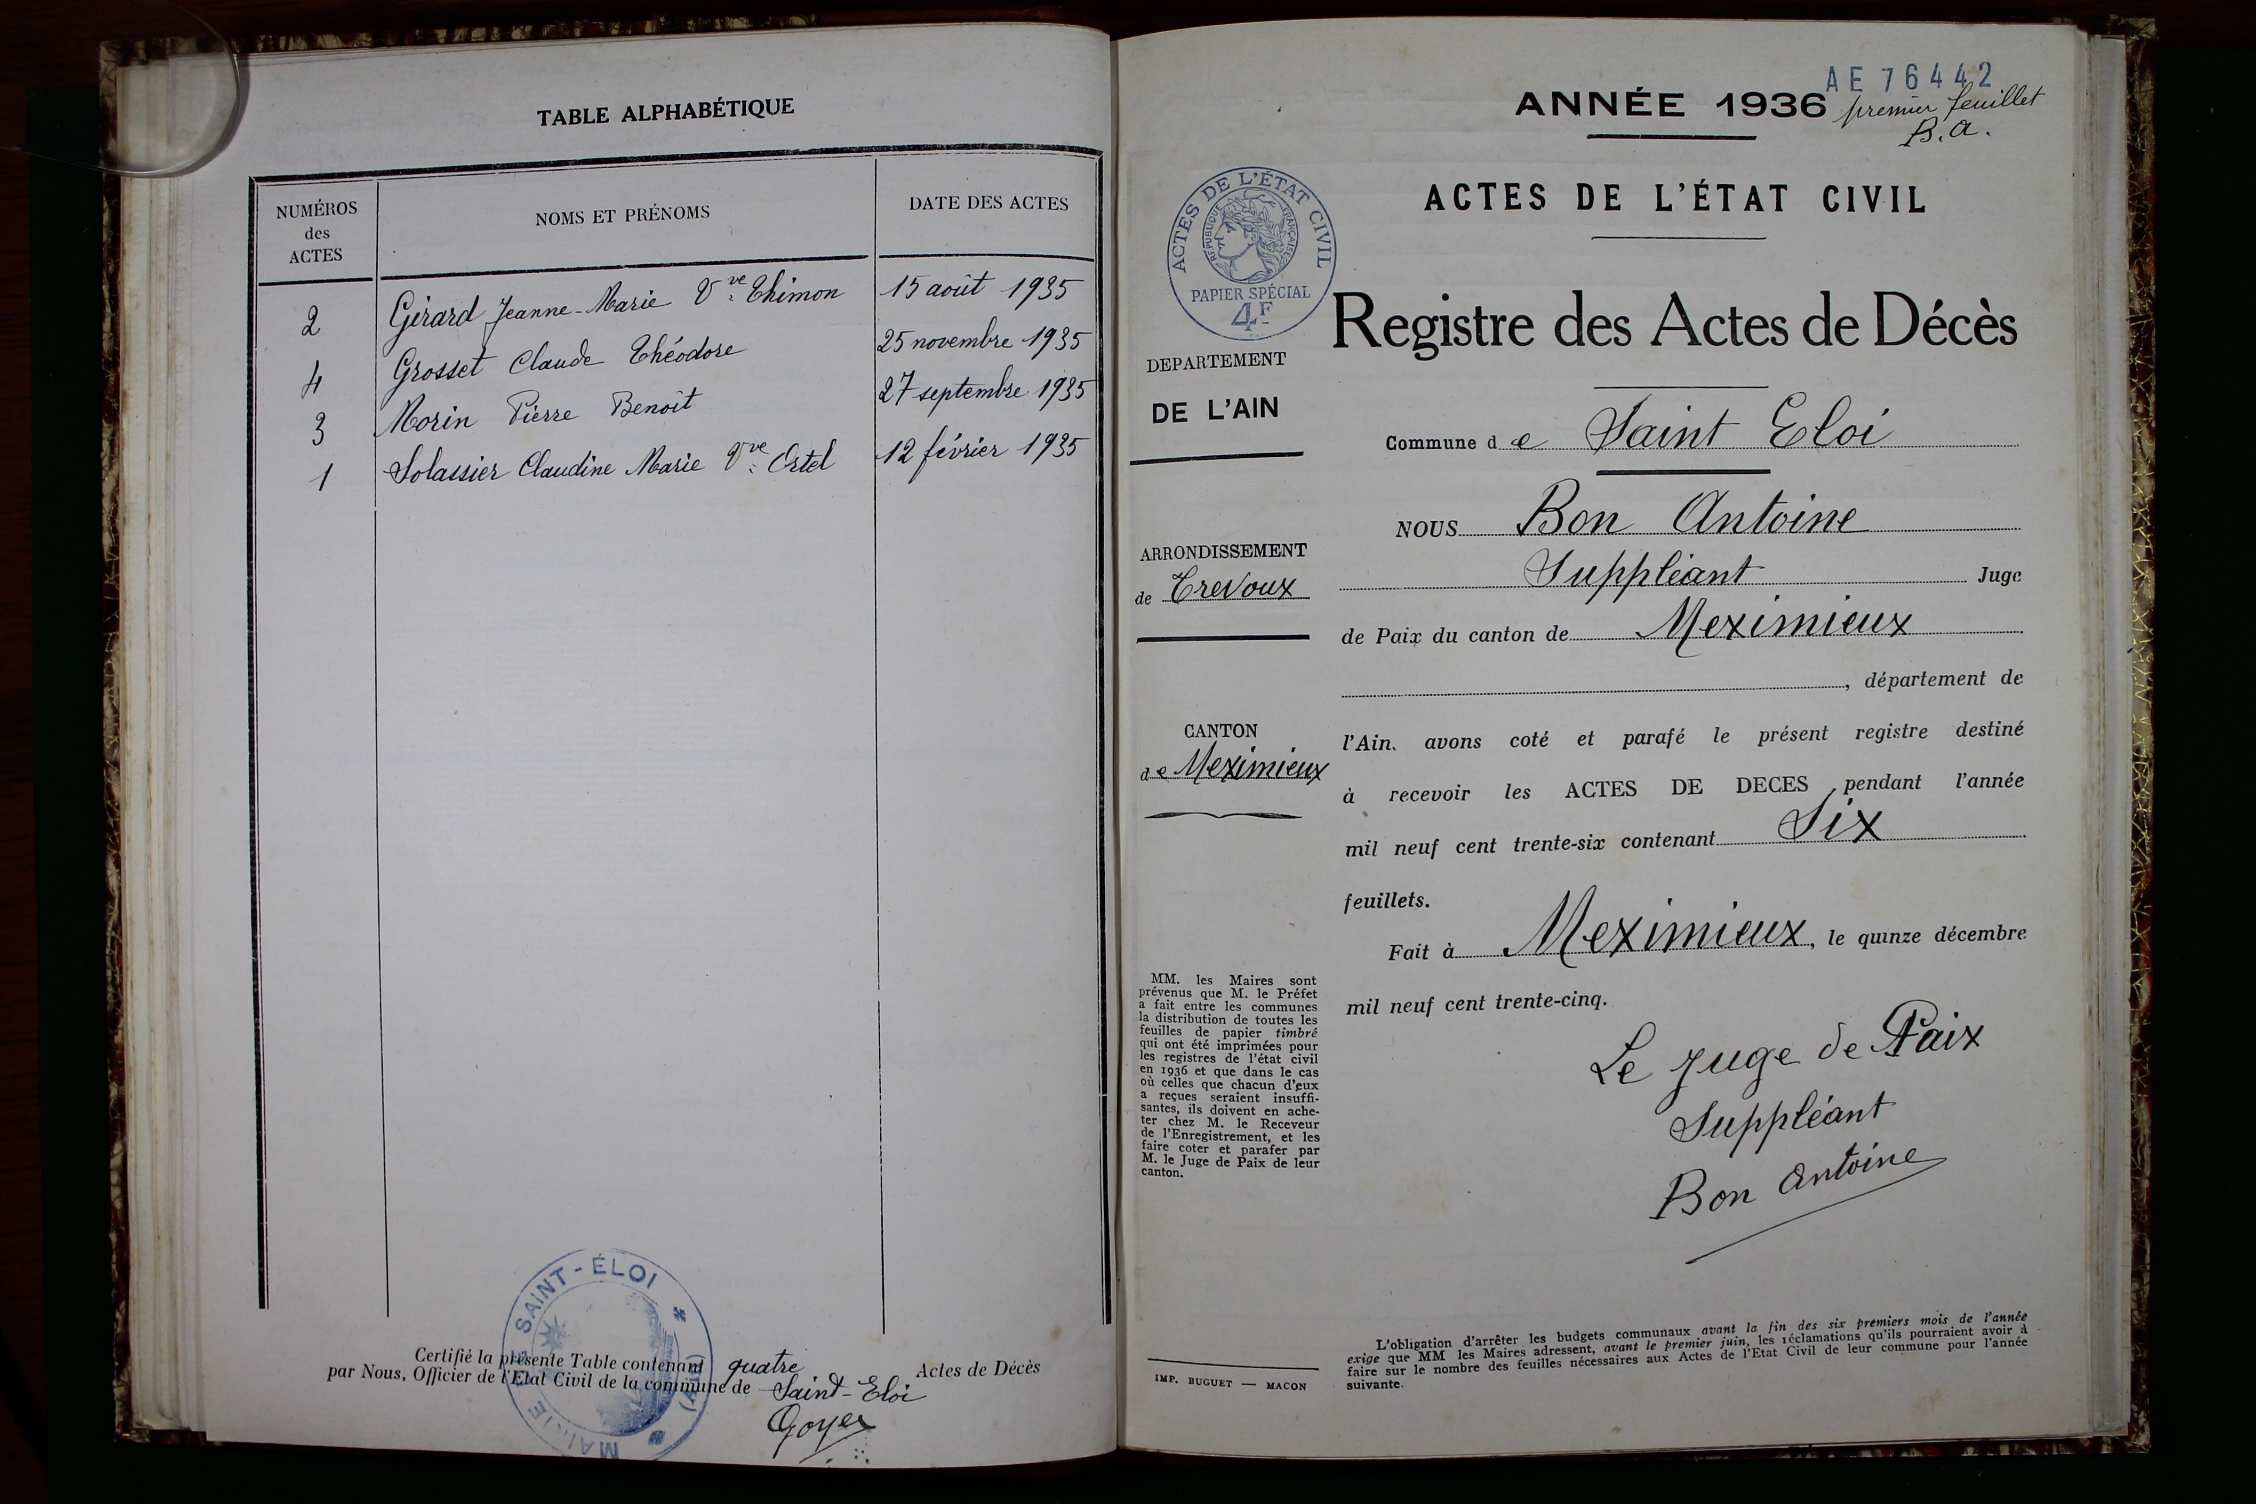 TABLE ALPHABÉTIQUE
NUMÉROS
des
ACTES
NOMS ET PRÉNOMS
DATE DES ACTES
2 Girard Jeanne-Marie Vve Thimon 15 août 1935
4 Grosset Claude Théodore 25 novembre 1935
3 Morin Pierre Benoît 27 septembre 1935
1 Solassier Claudine Marie Vve Ortel 12 février 1935
MAIRIE DE SAINT-ÉLOI * (Ain) *
Certifié la présente Table contenant quatre Actes de Décès
par Nous, Officier de l'Etat Civil de la commune de Saint-Eloi
Goyer
AE 76442
ANNÉE 1936 premier feuillet
B.A.
ACTES DE L'ÉTAT CIVIL
RÉPUBLIQUE FRANÇAISE
PAPIER SPÉCIAL
4F
ACTES DE L'ÉTAT CIVIL
Registre des Actes de Décès
DEPARTEMENT
DE L'AIN
ARRONDISSEMENT
de Trevoux
CANTON
de Meximieux
MM. les Maires sont
prévenus que M. le Préfet
a fait entre les communes
la distribution de toutes les
feuilles de papier timbré
qui ont été imprimées pour
les registres de l'état civil
en 1936 et que dans le cas
où celles que chacun d'eux
a reçues seraient insuffi-
santes, ils doivent en ache-
ter chez M. le Receveur
de l'Enregistrement, et les
faire coter et parafer par
M. le Juge de Paix de leur
canton.
IMP. BUGUET — MACON
Commune de Saint Eloi
NOUS Bon Antoine
Suppléant Juge
de Paix du canton de Meximieux
, département de
l'Ain, avons coté et parafé le présent registre destiné
à recevoir les ACTES DE DECES pendant l'année
mil neuf cent trente-six contenant Six
feuillets.
Fait à Meximieux, le quinze décembre
mil neuf cent trente-cinq.
Le Juge de Paix
Suppléant
Bon Antoine
L'obligation d'arrêter les budgets communaux avant la fin des six premiers mois de l'année
exige que MM les Maires adressent, avant le premier juin, les réclamations qu'ils pourraient avoir à
faire sur le nombre des feuilles nécessaires aux Actes de l'Etat Civil de leur commune pour l'année
suivante.